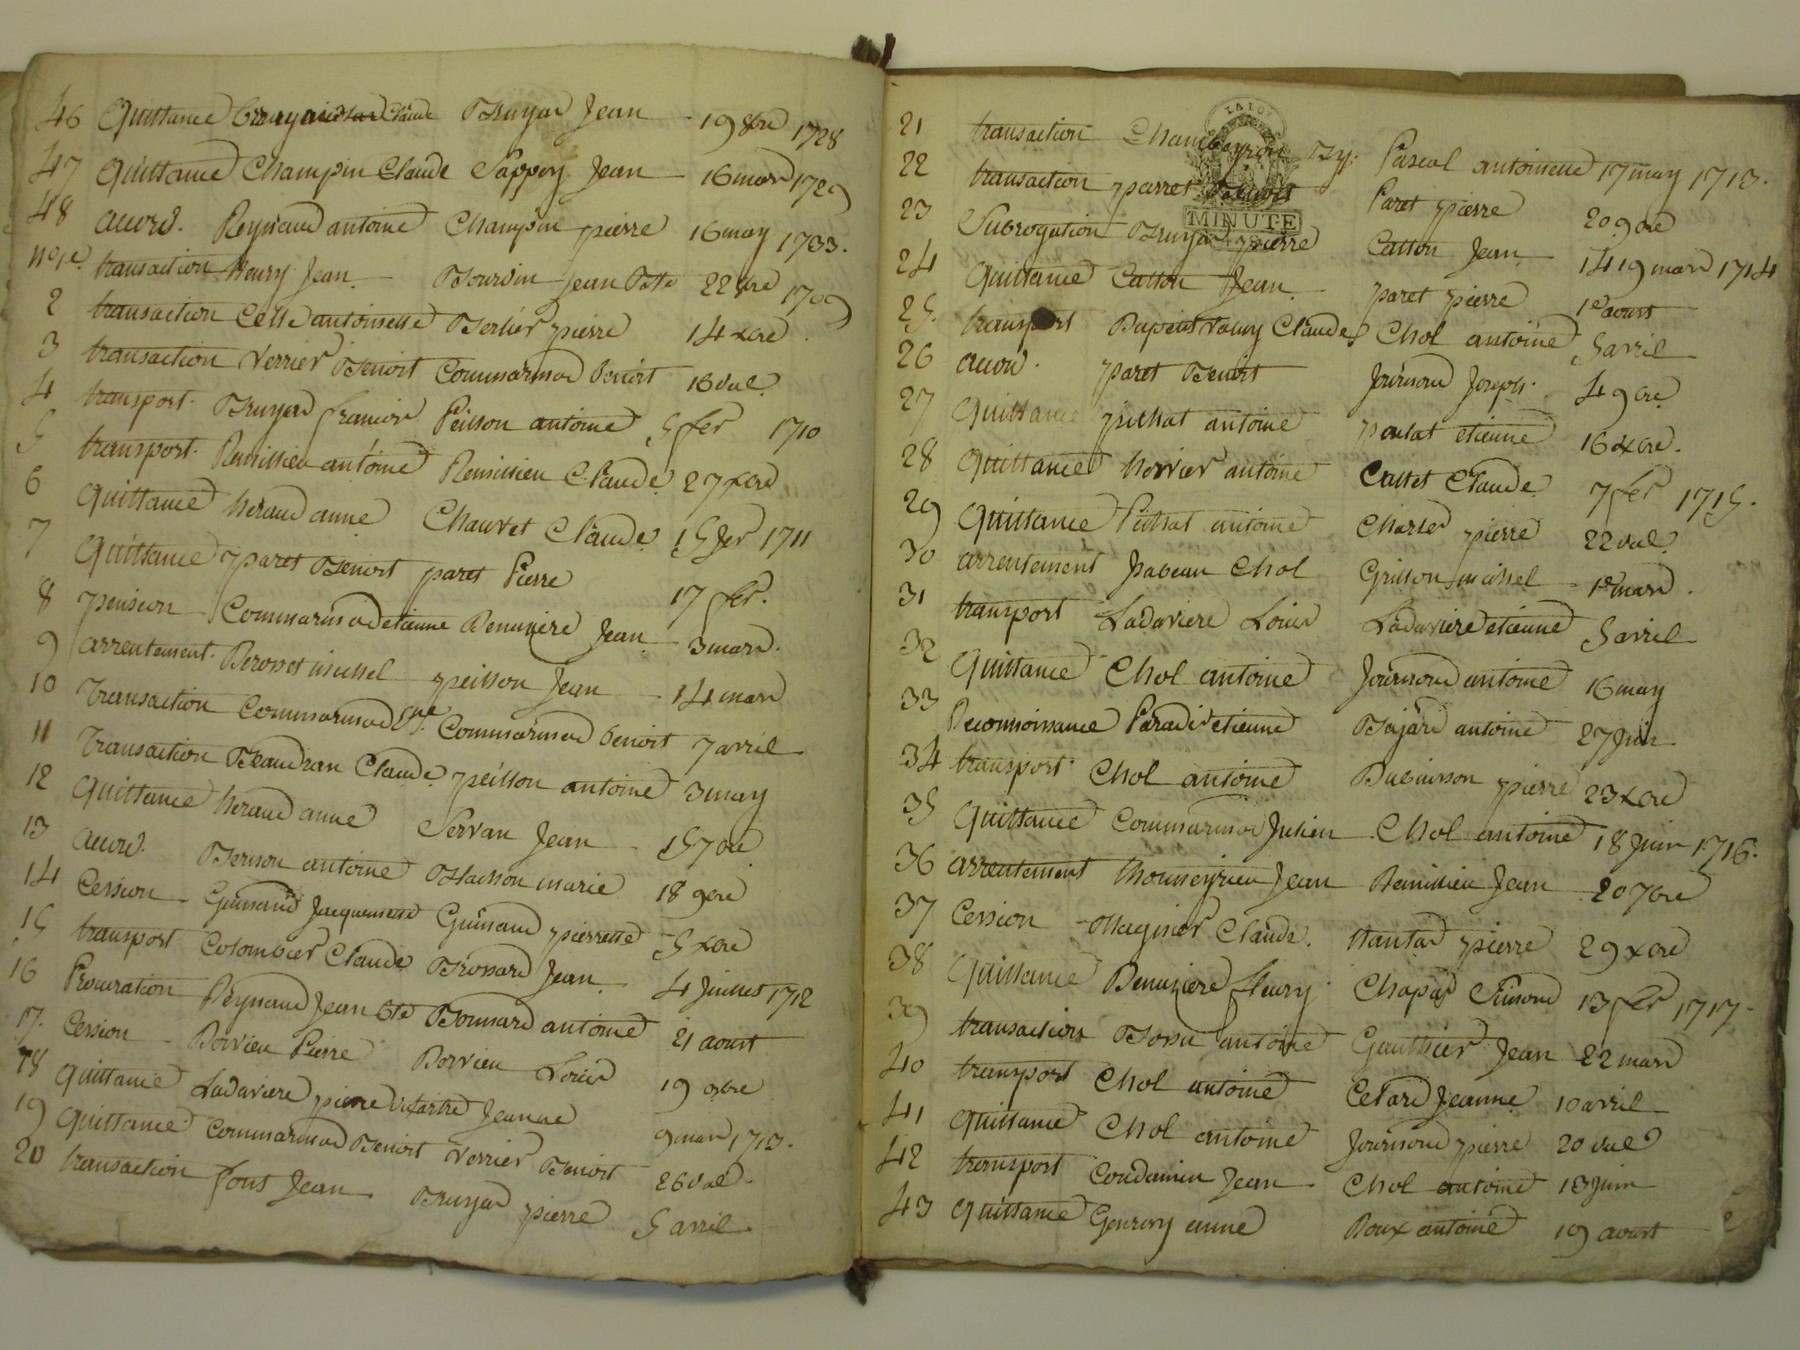 46 Quittance Claude Bruyas Jean 19 8bre 1728
47 Quittance Champin Claude Jean 16 mars 1729
48 accord. Reynaud antoine Champin pierre 16 may 1733.
transaction fleury Jean Bourdin Jean Bte 1709
2 transaction antoinette Berlier pierre 14 xbre
3 transaction Verrier Benoit Commarmod benoit 16 dud.
4 transport. Bruyas françois Peisson antoine 5 fer 1710
5 transport. Remillieu antoine Remillieu Claude 27 xbre
6 Quittance heraud anne Chauvet Claude 15 fer 1711
7 Quittance paret Benoit paret Pierre 17 fer.
8 pension Commarmod etienne Jean 3 mars.
9 arrentement. michel peisson Jean 14 mars
10 Transaction Commarmod Commarmod benoit 7 avril
11 Transaction Beaudran Claude peisson antoine 3 may
12 Quittance heraud anne Servan Jean 15 7bre
13 accord. antoine marie 18 9bre
14 Cession Guinand Jacquemette Guinand pierrette 5 xbre
15 transport Colombier Claude Brossard Jean 4 Juillet 1712
16 Procuration Reynaud Jean Bte Bonnard antoine 21 aoust
17. Cession Pierre Louis 19
18 Quittance Ladaviere pierre Jeanne 9 mars 1713.
19 Quittance Commarmod Benoit Verrier Benoit 26 dud.
20 transaction font Jean Bruyas pierre 5 avril
21 transaction Chambeyron Pascal antoinette 17 may 1713.
22 transaction parret Paret pierre 20 9bre
MINUTE
23 Subrogation Bruyas pierre Catton Jean 19 mars 1714
24 Quittance Catton Jean paret pierre 1er aoust
25. transport Claude Chol antoine 5 avril
26 accord. paret Benoit Journoud Joseph. 4 9bre
27 Quittance pithat antoine etienne 16 xbre.
28 Quittance antoine Claude 7 fer 1715.
29 Quittance Pithat antoine pierre 22 dud.
30 arrentement Chol michel 1er mars.
31 transport Ladaviere Louis Ladaviere etienne 5 avril
32 Quittance Chol antoine Journoud antoine 16 may
33 Reconnoissance Paradis etienne Bajard antoine 27 Juin
34 transport. Chol antoine Dubuisson pierre 23 xbre
35 Quittance Commarmod Julien Chol antoine 18 Juin 1716.
36 arrentement Jean Remillieu Jean 20 7bre
37 Cession Claude. pierre 29 xbre
38 Quittance fleury Simond 13 fer 1717.
39 transaction antoine Gauthier Jean 22 mars
40 transport Chol antoine Jeanne 10 avril
41 Quittance Chol antoine Journoud pierre 20 dud
42 transport Condamin Jean Chol antoine 18 Juin
43 Quittance anne Roux antoine 19 aoust